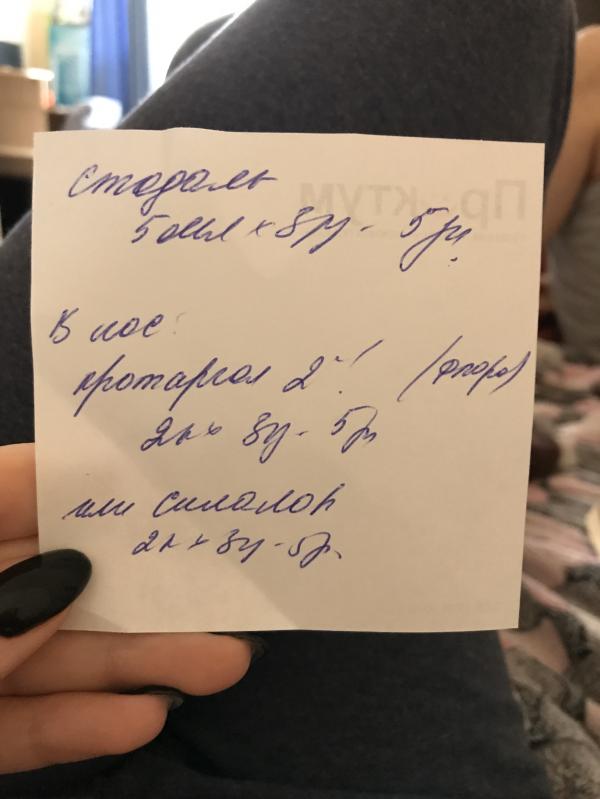 Стодаль
5 мл × 3 р - 5 дн.
В нос:
протаргол 2%! (флора)
2 к × 3 р - 5 дн
или сиалор
2 к × 3 р - 5 дн.